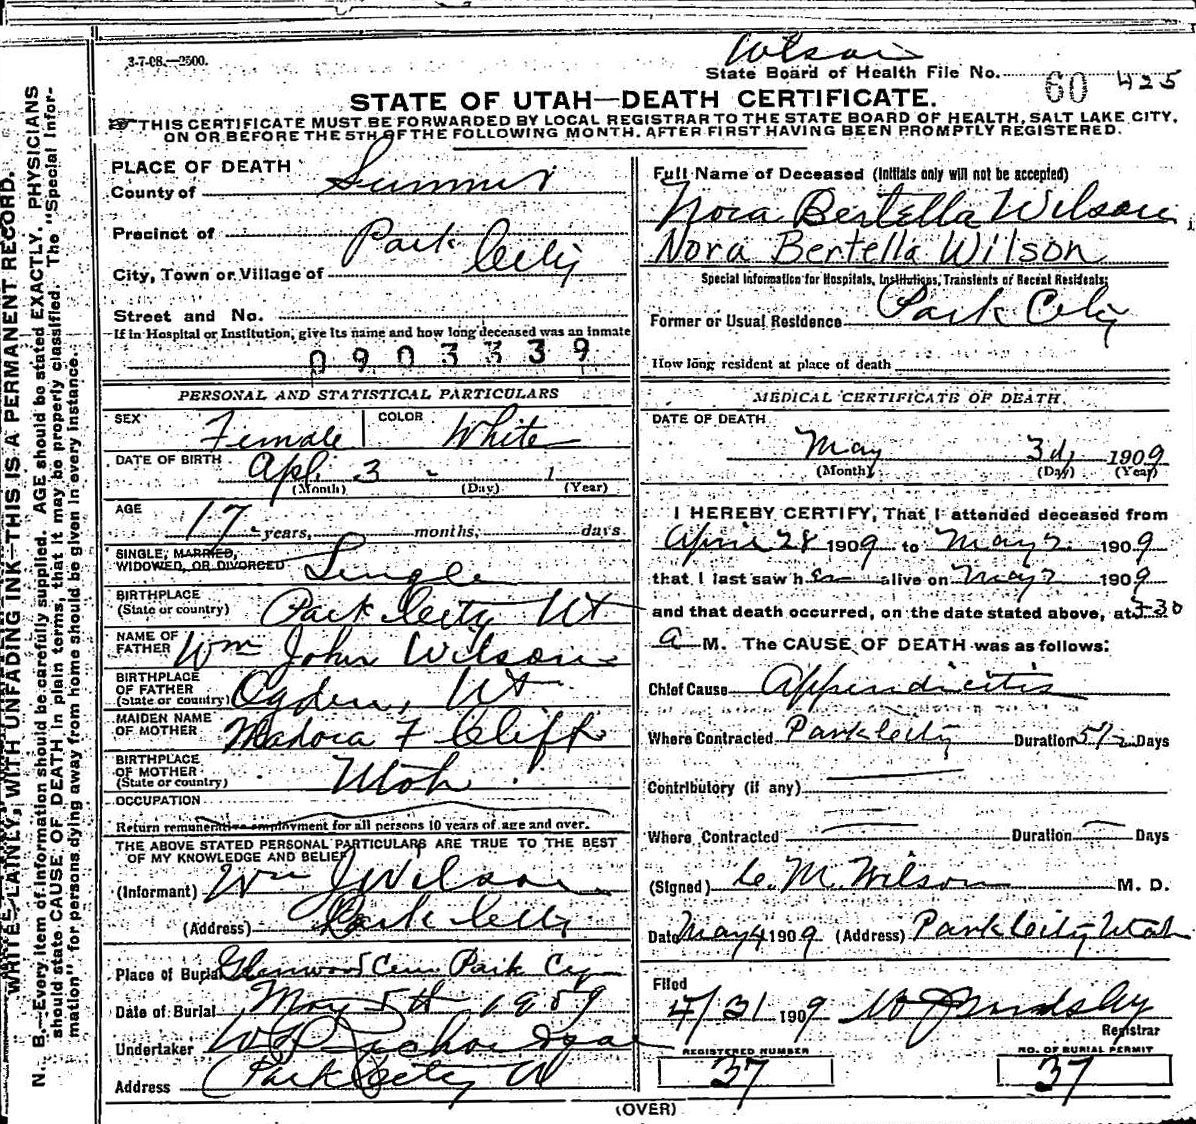 3-7-08.—2500.
Wilson
State Board of Health File No. 60 425
STATE OF UTAH—DEATH CERTIFICATE.
THIS CERTIFICATE MUST BE FORWARDED BY LOCAL REGISTRAR TO THE STATE BOARD OF HEALTH, SALT LAKE CITY,
ON OR BEFORE THE 5TH OF THE FOLLOWING MONTH. AFTER FIRST HAVING BEEN PROMPTLY REGISTERED.
WRITE PLAINLY, WITH UNFADING INK—THIS IS A PERMANENT RECORD.
N. B.—Every item of information should be carefully supplied. AGE should be stated EXACTLY. PHYSICIANS
should state CAUSE OF DEATH in plain terms, that it may be properly classified. The "Special Infor-
mation" for persons dying away from home should be given in every instance.
PLACE OF DEATH
County of Summit
Precinct of
City, Town or Village of Park City
Street and No.
If in Hospital or Institution, give its name and how long deceased was an inmate
0903339
PERSONAL AND STATISTICAL PARTICULARS
SEX Female COLOR White
DATE OF BIRTH Apl. 3 - 1
(Month) (Day) (Year)
AGE 17 years, months, days.
SINGLE, MARRIED,
WIDOWED, OR DIVORCED Single
BIRTHPLACE
(State or country) Park City Ut
NAME OF
FATHER Wm John Wilson
BIRTHPLACE
OF FATHER
(State or country) Ogden, Ut
MAIDEN NAME
OF MOTHER Madora F Clift
BIRTHPLACE
OF MOTHER
(State or country) Utah
OCCUPATION
Return remunerative employment for all persons 10 years of age and over.
THE ABOVE STATED PERSONAL PARTICULARS ARE TRUE TO THE BEST
OF MY KNOWLEDGE AND BELIEF
(Informant) Wm J Wilson
(Address) Park City
Place of Burial Glenwood Cem Park Cy
Date of Burial May 5th 1909
Undertaker
Address Park City Ut
Full Name of Deceased (Initials only will not be accepted)
Nora Bertella Wilson
Nora Bertella Wilson
Special Information for Hospitals, Institutions, Transients or Recent Residents:
Former or Usual Residence Park City
How long resident at place of death
MEDICAL CERTIFICATE OF DEATH.
DATE OF DEATH
May 3d, 1909
(Month) (Day) (Year)
I HEREBY CERTIFY, That I attended deceased from
April 28 1909 to May 2 1909
that I last saw her alive on May 2 1909
and that death occurred, on the date stated above, at 3-30
a M. The CAUSE OF DEATH was as follows:
Chief Cause Appendicitis
Where Contracted Park City Duration 5 1/2 Days
Contributory (if any)
Where Contracted Duration Days
(Signed) C. M. Wilson M. D.
Date May 4 1909 (Address) Park City Utah
Filed
1909
Registrar
REGISTERED NUMBER
37
NO. OF BURIAL PERMIT
37
(OVER)